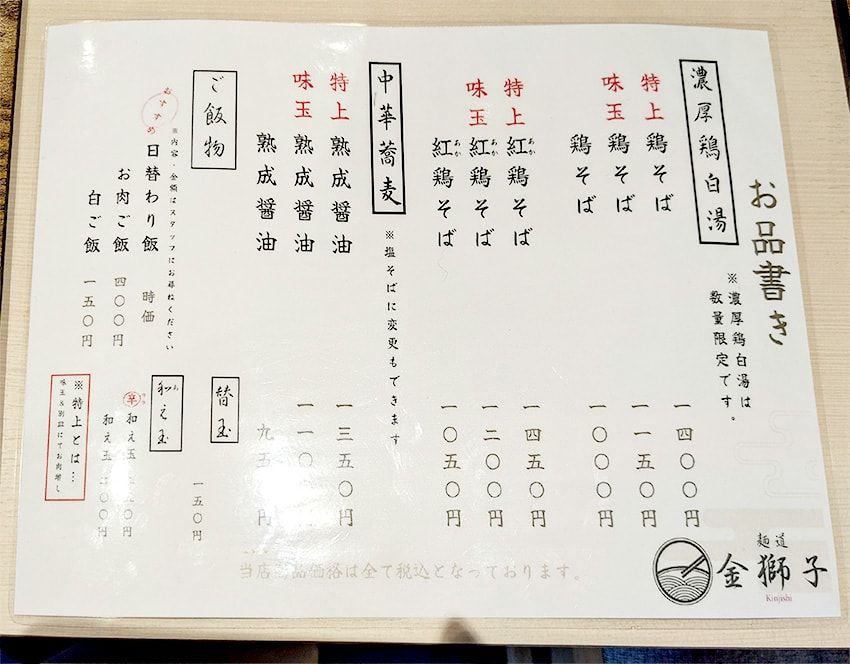 お品書き
濃厚鶏白湯
※濃厚鶏白湯は
数量限定です。
特上 鶏そば 一四〇〇円
味玉 鶏そば 一一五〇円
鶏そば 一〇〇〇円
特上 紅鶏そば 一四五〇円
あか
味玉 紅鶏そば 一二〇〇円
あか
紅鶏そば 一〇五〇円
あか
中華蕎麦
※塩そばに変更もできます
特上 熟成醤油 一三五〇円
味玉 熟成醤油 一一〇
熟成醤油 九五 円
ご飯物
※内容・金額はスタッフにお尋ねください
おすすめ
日替わり飯 時価
お肉ご飯 四〇〇円
白ご飯 一五〇円
替玉
一五〇円
和え玉
あ
辛 和え玉 〇円
和え玉 〇〇円
※特上とは…
味玉&別皿にてお肉増し
当店商品価格は全て税込となっております。
麺道
金獅子
Kinjishi